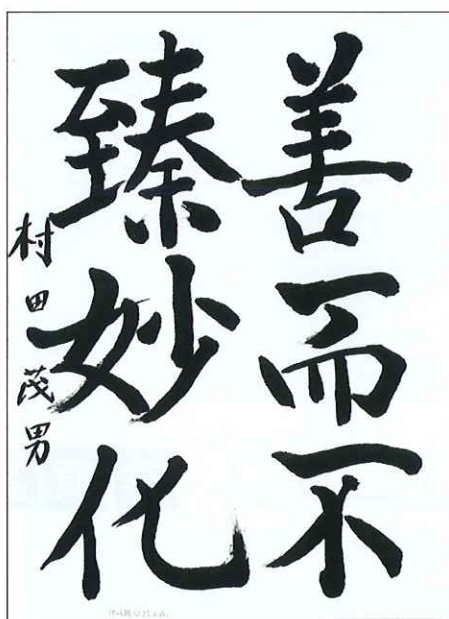 善而不
臻妙化
村田茂男